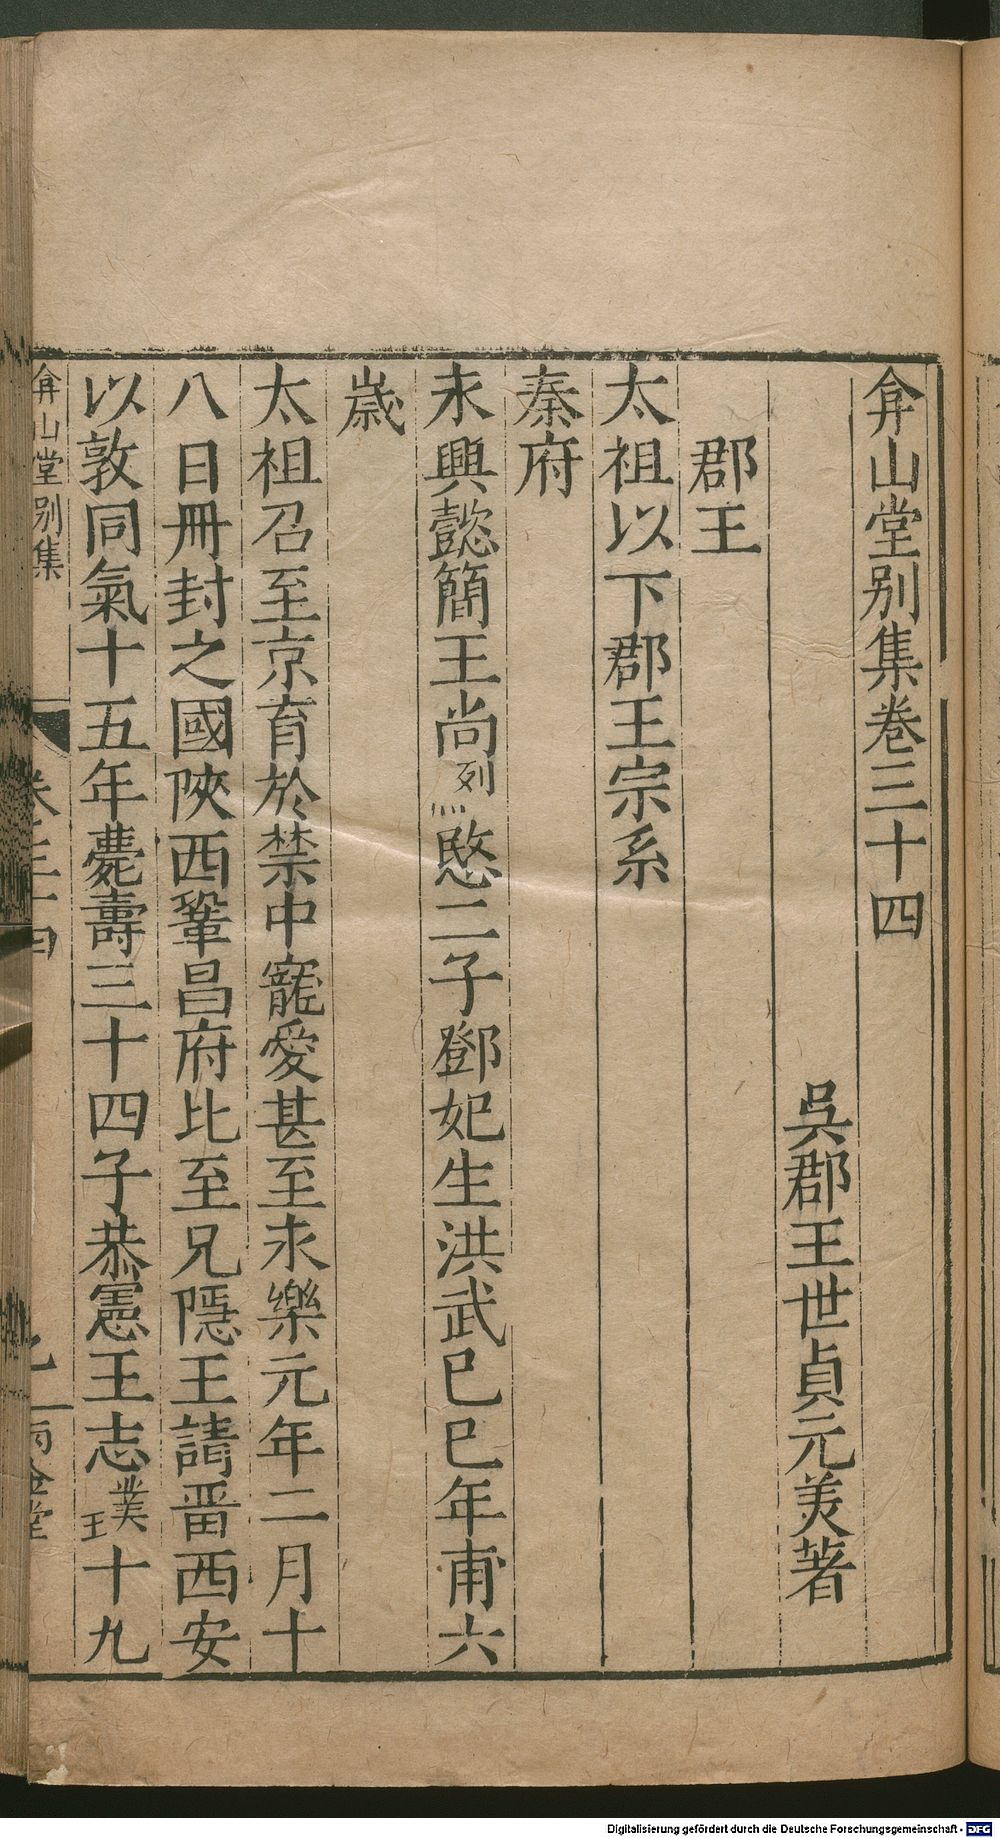 弇山堂别集卷三十四
吳郡王世貞元美著
郡王
太祖以下郡王宗系
秦府
永興懿簡王尚烈愍二子鄧妃生洪武巳巳年甫六
歲
太祖召至京育於禁中寵愛甚至永樂元年二月十
八日冊封之國陝西鞏昌府比至兄隱王請畱西安
以敦同氣十五年薨壽三十四子恭憲王志墣十九
弇山堂别集
卷三十四
Digitalisierung gefördert durch die Deutsche Forschungsgemeinschaft - DFG